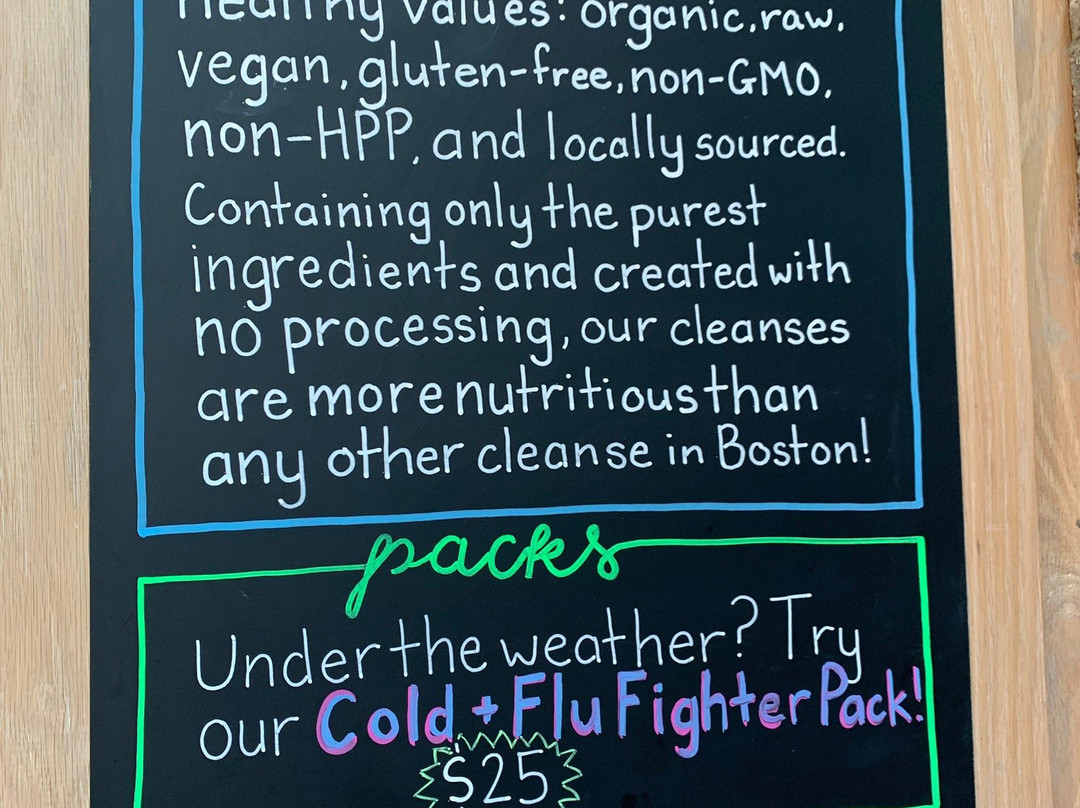 Healthy values: organic, raw,
vegan, gluten-free, non-GMO,
non-HPP, and locally sourced.
Containing only the purest
ingredients and created with
no processing, our cleanses
are more nutritious than
any other cleanse in Boston!
packs
Under the weather? Try
our Cold + Flu Fighter Pack!
$25